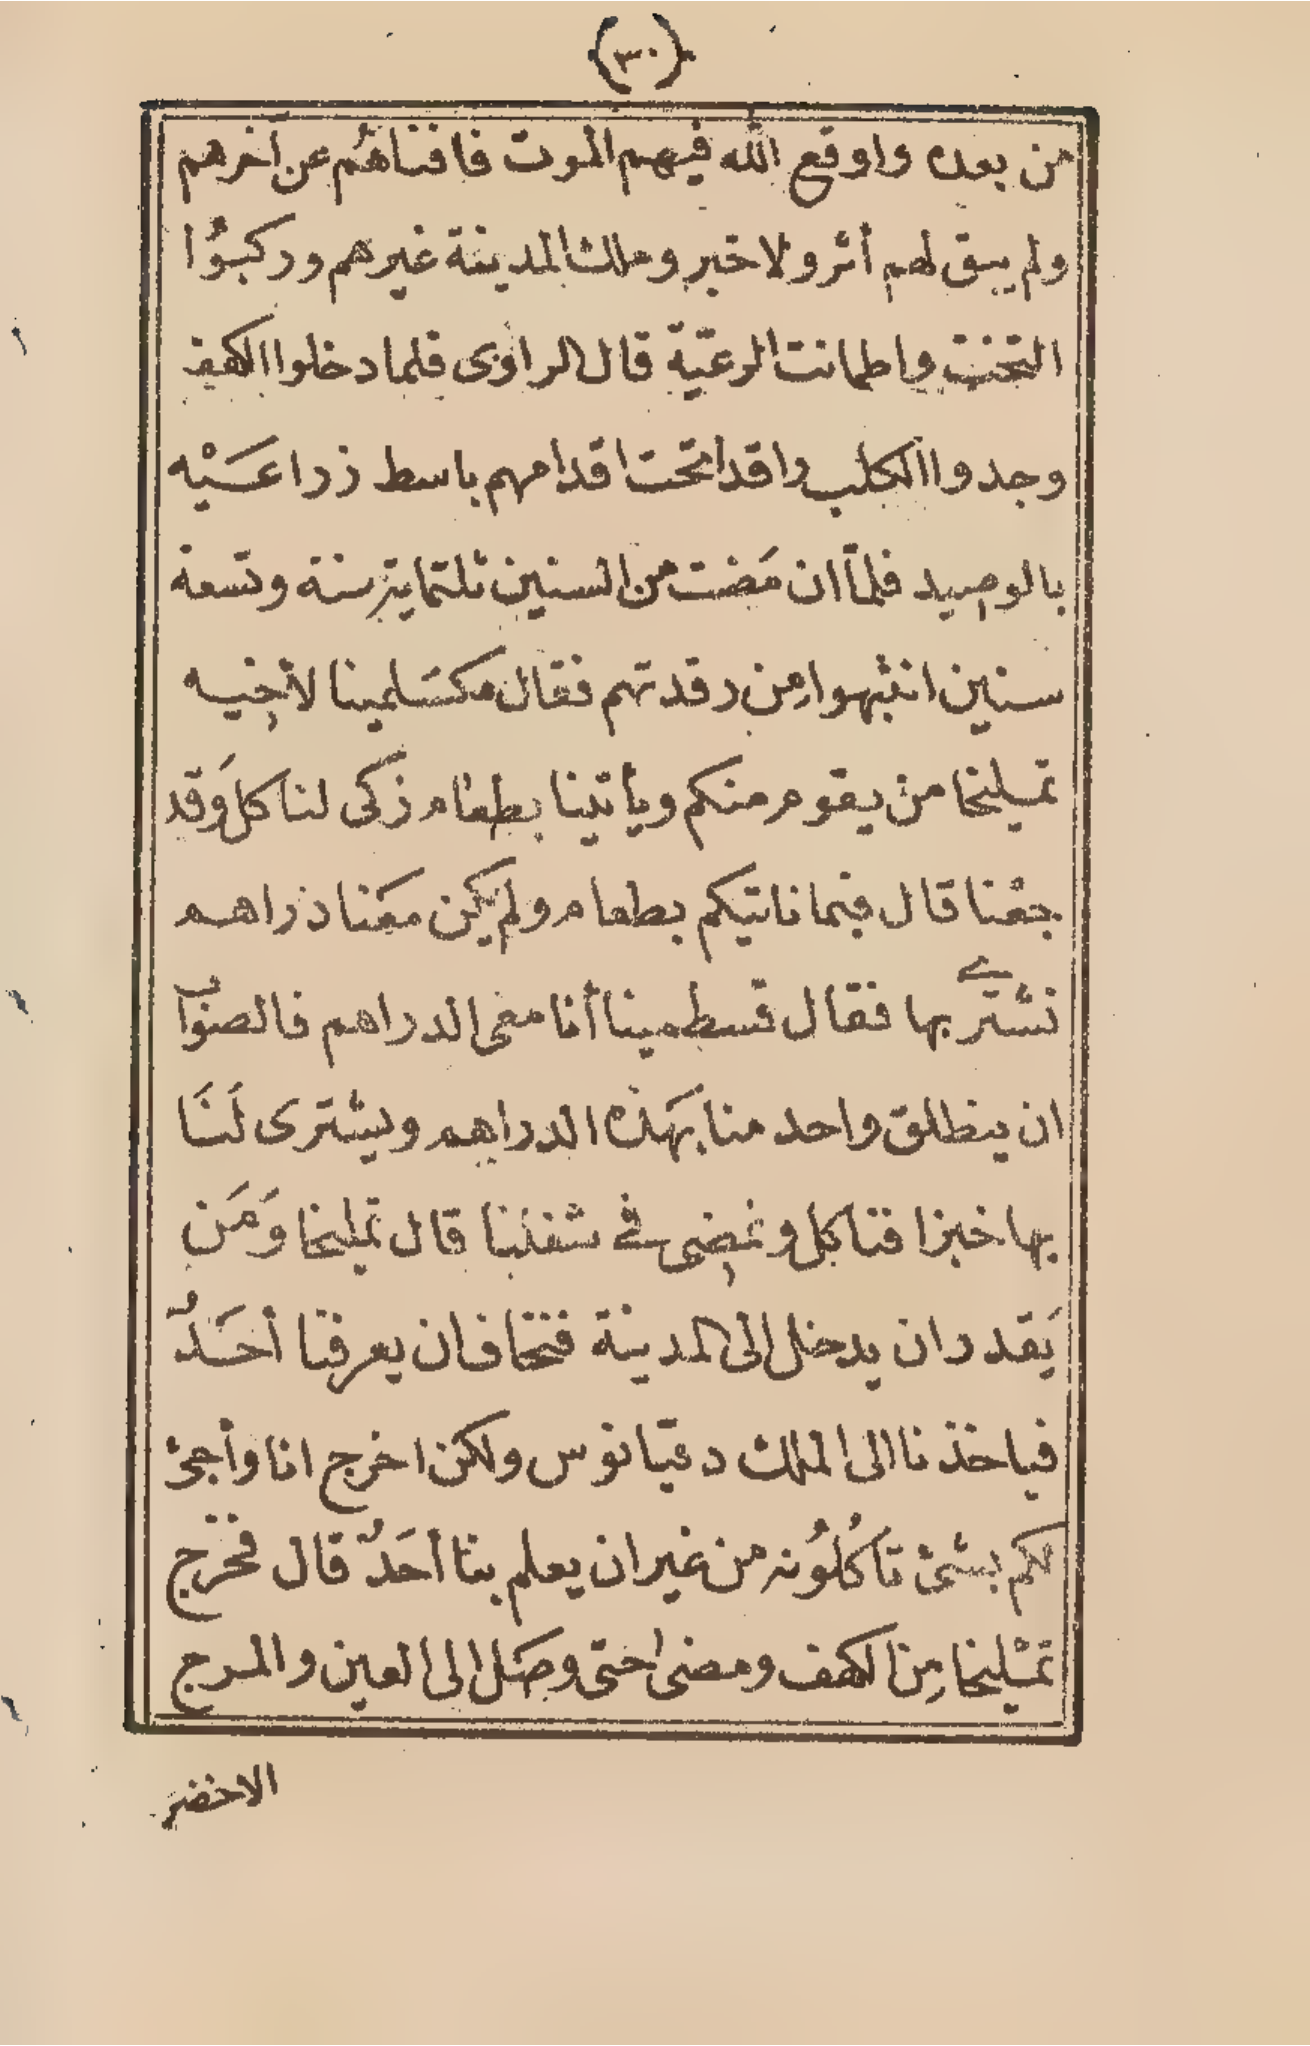 (٣٠)
من بعده واوقع الله فيهم الموت فافناهُم عن آخرهم
ولم يبق لهم أثر ولا خبر وملك المدينة غيرهم وركبوُا
التخت واطمانت الرعيّة قال الراوى فلما دخلوا الكهف
وجدوا الكلب راقدا تحت اقدامهم باسط ذراعَيْه
بالوصيد فلمّا ان مَضت من السنين ثلثماية سنة وتسعة
سنين انتبهوا مِن رقدتهم فقال مكسَلمينا لأخيه
تمليخا من يقوم منكم ويأتينا بطعام زكى لنا كل وَقد
جعْنا قال فبما ناتيكم بطعام ولم يكن معَنا دراهم
نشترى بها فقال قسطمينا أنا معى الدراهم فالصواب
ان ينطلق واحد منا بهَذه الدراهم ويشترى لَنَا
بها خبزا فناكل ونمضى فى شغلنا قال تمليخا وَمَن
يَقدر ان يدخل الى المدينة فنخاف ان يعرفنا أحَدٌ
فياخذنا الى الملك دقيانوس ولكن اخرج انا وأجئ
لكم بشئ تَأكُلوُنه من غير ان يعلم بنا أحَدٌ قال فخرج
تمْليخا مِن الكهف ومضى حتى وصَل الى العين والمرج
الاخضر